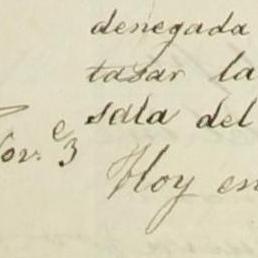 denegada
tasar la
sala del
Nov.e 3
Hoy en